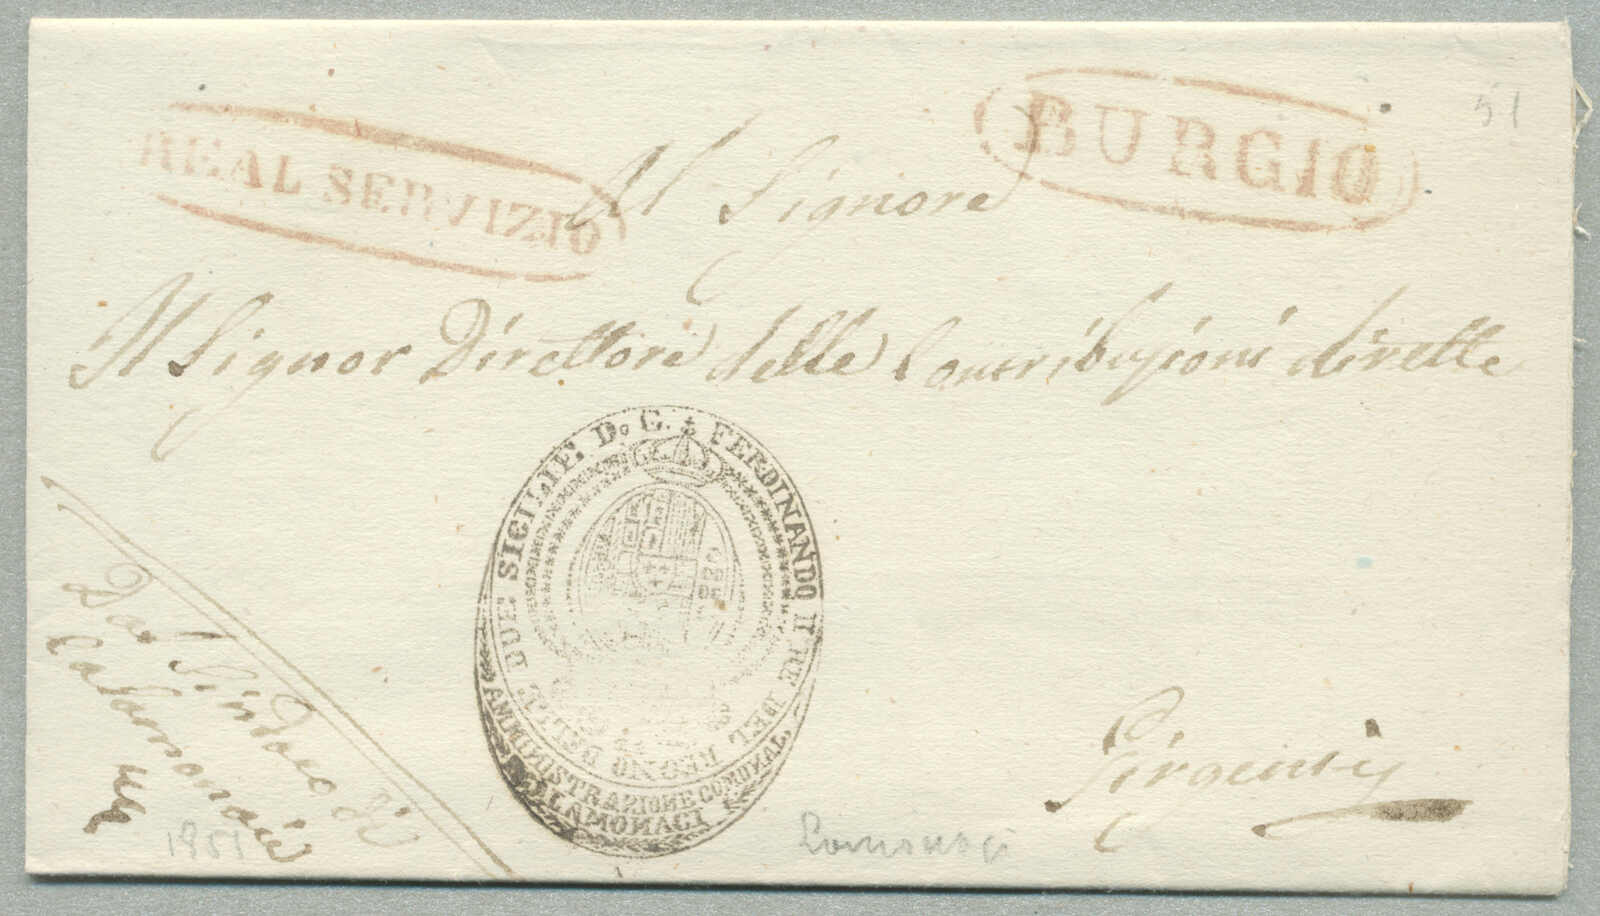 REAL SERVIZIO
BURGIO
51
Al Signore
Il Signor Direttore delle Contribuzioni dirette
FERDINANDO II RE DEL REGNO DELLE DUE SICILIE D. G.
AMMINISTRAZIONE COMUNAL,
CALAMONACI
Dal Sindaco di
Calamonaci
Girgenti
1851